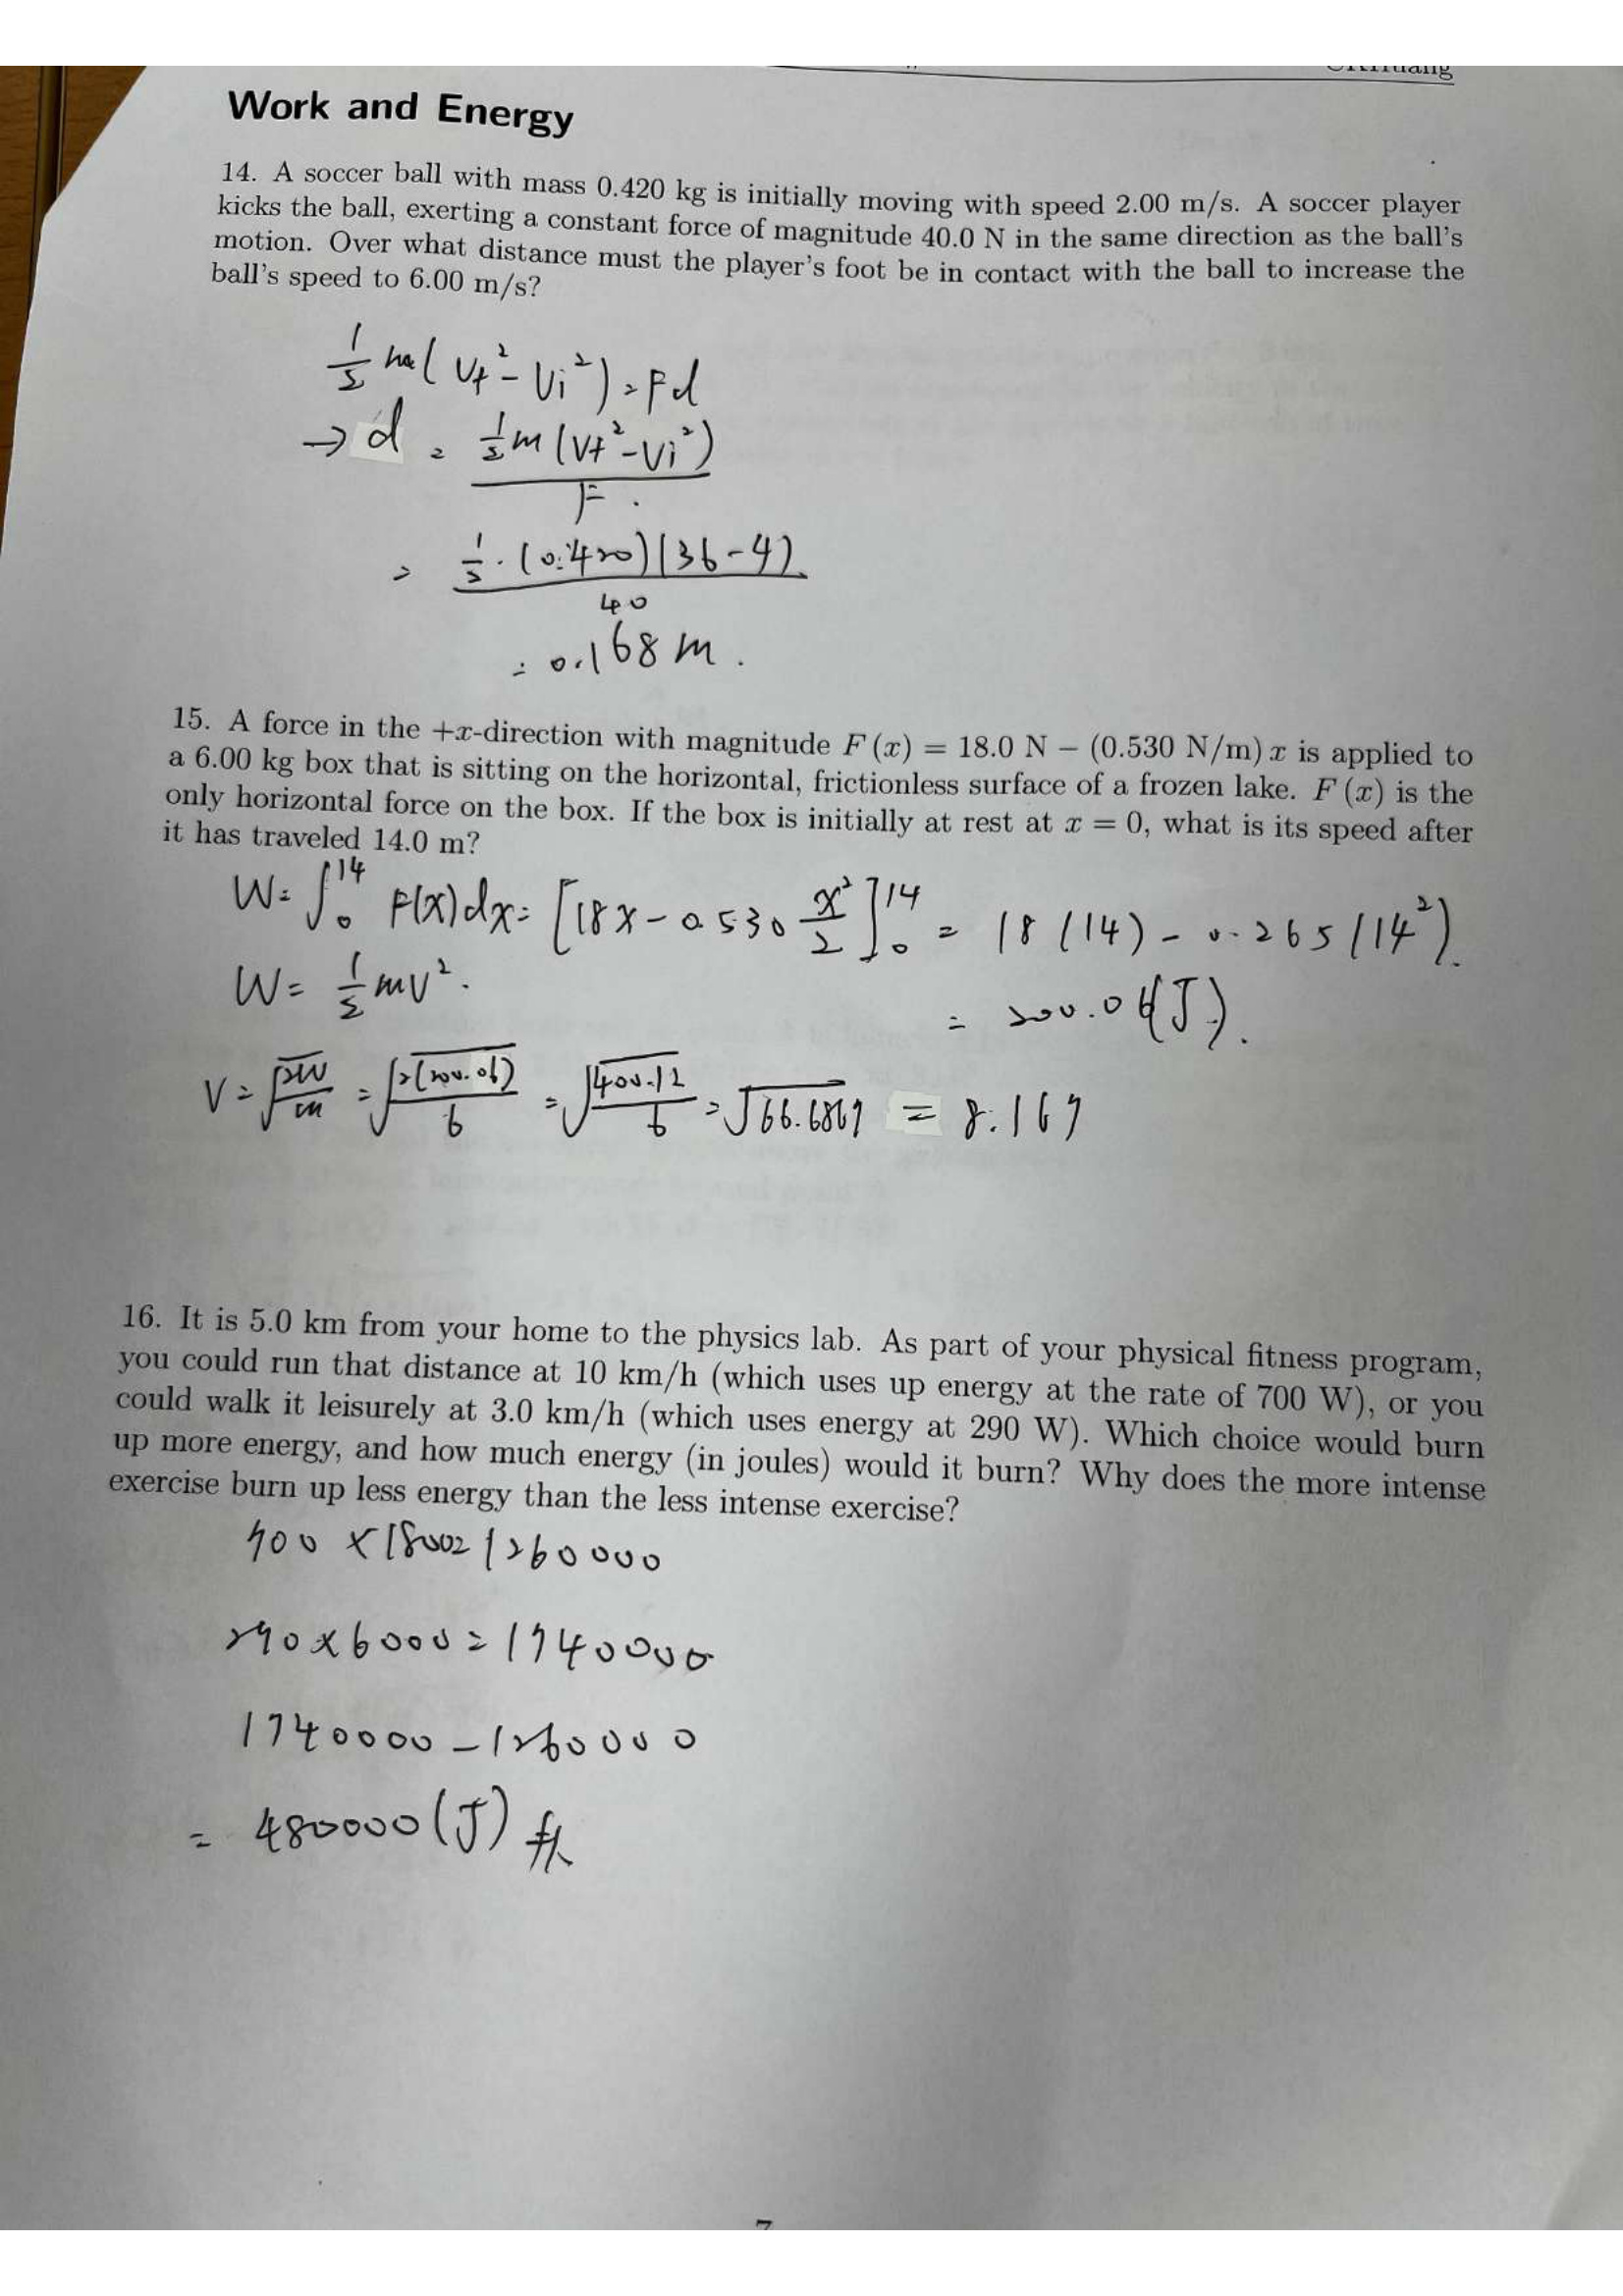 Work and Energy
14. A soccer ball with mass 0.420 kg is initially moving with speed 2.00 m/s. A soccer player
kicks the ball, exerting a constant force of magnitude 40.0 N in the same direction as the ball's
motion. Over what distance must the player's foot be in contact with the ball to increase the
ball's speed to 6.00 m/s?
1/2 m(Vf² - Vi²) = Fd
→ d = 1/2 m(Vf² - Vi²) / F.
= 1/2 · (0.420)(36-4) / 40
= 0.168 m.
15. A force in the +x-direction with magnitude F (x) = 18.0 N − (0.530 N/m) x is applied to
a 6.00 kg box that is sitting on the horizontal, frictionless surface of a frozen lake. F (x) is the
only horizontal force on the box. If the box is initially at rest at x = 0, what is its speed after
it has traveled 14.0 m?
W = ∫₀¹⁴ F(x)dx = [18x - 0.530 x²/2]₀¹⁴ = 18(14) - 0.265(14²).
W = 1/2 mv².
= 200.06(J).
V = √(2W/m) = √(2(200.06)/6) = √(400.12/6) = √66.6867 = 8.167
16. It is 5.0 km from your home to the physics lab. As part of your physical fitness program,
you could run that distance at 10 km/h (which uses up energy at the rate of 700 W), or you
could walk it leisurely at 3.0 km/h (which uses energy at 290 W). Which choice would burn
up more energy, and how much energy (in joules) would it burn? Why does the more intense
exercise burn up less energy than the less intense exercise?
700 × 1800 = 1260000
290 × 6000 = 1740000
1740000 - 1260000
= 480000 (J)
7